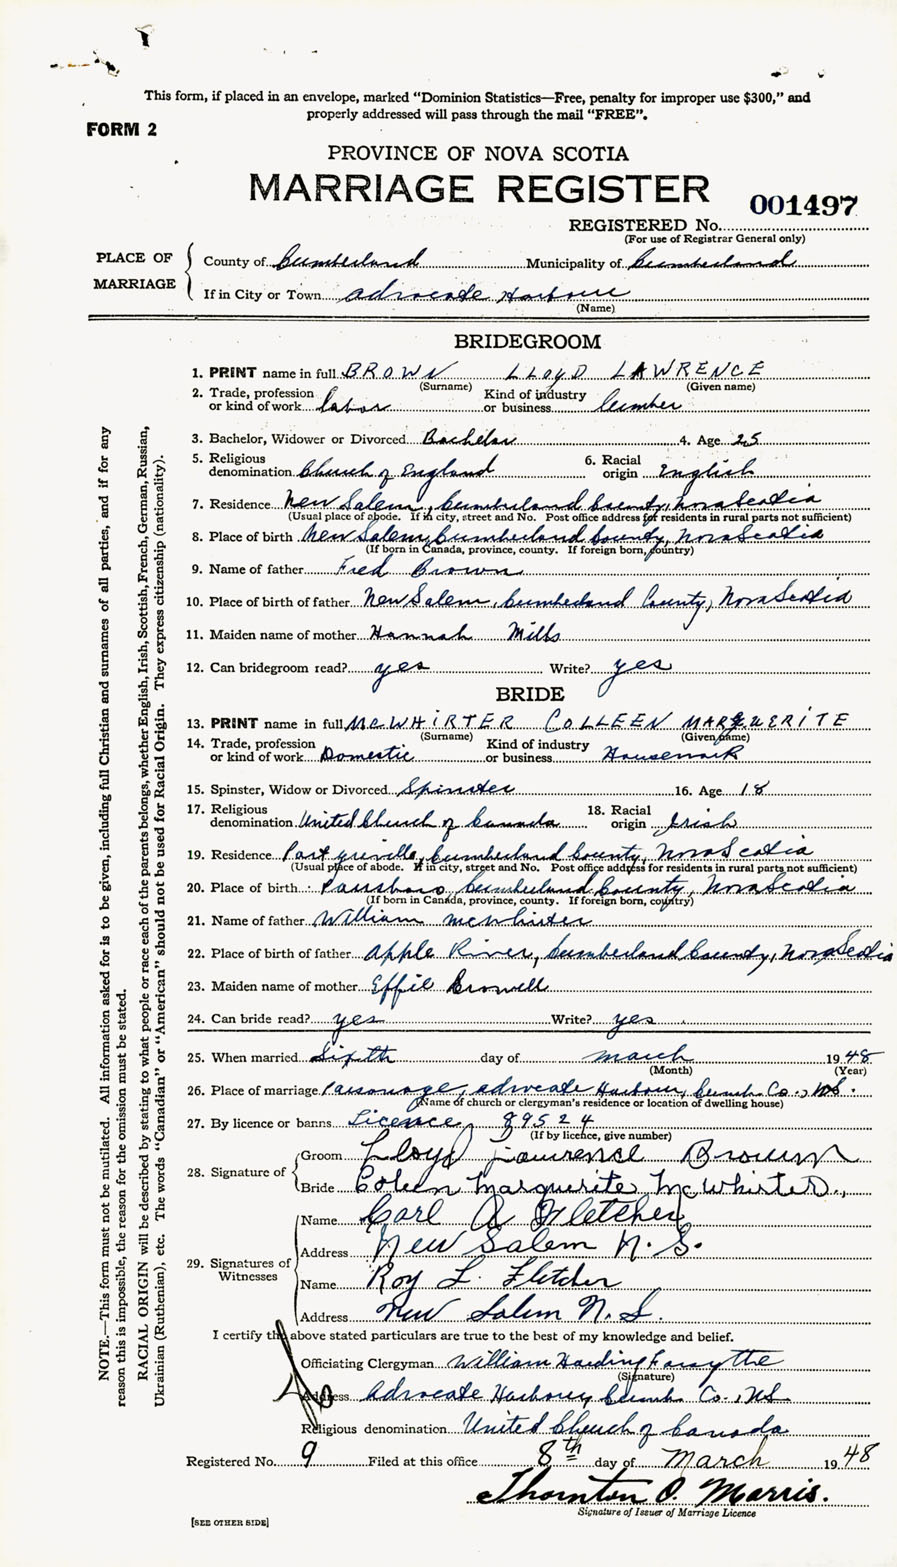 This form, if placed in an envelope, marked "Dominion Statistics—Free, penalty for improper use $300," and
properly addressed will pass through the mail "FREE".
FORM 2
PROVINCE OF NOVA SCOTIA
MARRIAGE REGISTER
001497
REGISTERED No.
(For use of Registrar General only)
PLACE OF MARRIAGE
County of Cumberland Municipality of Cumberland
If in City or Town Advocate Harbour
(Name)
BRIDEGROOM
1. PRINT name in full BROWN LLOYD LAWRENCE
(Surname) (Given name)
2. Trade, profession or kind of work labor Kind of industry or business lumber
3. Bachelor, Widower or Divorced Bachelor 4. Age 25
5. Religious denomination Church of England 6. Racial origin English
7. Residence New Salem, Cumberland County, Nova Scotia
(Usual place of abode. If in city, street and No. Post office address for residents in rural parts not sufficient)
8. Place of birth New Salem, Cumberland County, Nova Scotia
(If born in Canada, province, county. If foreign born, country)
9. Name of father Fred Brown
10. Place of birth of father New Salem, Cumberland County, Nova Scotia
11. Maiden name of mother Hannah Mills
12. Can bridegroom read? yes Write? yes
BRIDE
13. PRINT name in full McWHIRTER COLLEEN MARGUERITE
(Surname) (Given name)
14. Trade, profession or kind of work Domestic Kind of industry or business Housework
15. Spinster, Widow or Divorced Spinster 16. Age 18
17. Religious denomination United Church of Canada 18. Racial origin Irish
19. Residence Port Greville, Cumberland County, Nova Scotia
(Usual place of abode. If in city, street and No. Post office address for residents in rural parts not sufficient)
20. Place of birth Parrsboro, Cumberland County, Nova Scotia
(If born in Canada, province, county. If foreign born, country)
21. Name of father William McWhirter
22. Place of birth of father Apple River, Cumberland County, Nova Scotia
23. Maiden name of mother Effie
24. Can bride read? yes Write? yes
25. When married Sixth day of March 1948
(Month) (Year)
26. Place of marriage Parsonage, Advocate Harbour, Cumb. Co., N.S.
(Name of church or clergyman's residence or location of dwelling house)
27. By licence or banns Licence 89524
(If by licence, give number)
28. Signature of
Groom Lloyd Lawrence Brown
Bride Coleen Marguerite McWhirter.
29. Signatures of Witnesses
Name Carl A Fletcher
Address New Salem N. S.
Name Roy L. Fletcher
Address New Salem N. S.
I certify the above stated particulars are true to the best of my knowledge and belief.
Officiating Clergyman William Harding Forsythe
(Signature)
Address Advocate Harbour, Cumb. Co., N.S
Religious denomination United Church of Canada
Registered No. 9 Filed at this office 8th day of March 1948
Thornton O. Morris.
Signature of Issuer of Marriage Licence
[SEE OTHER SIDE]
NOTE.—This form must not be mutilated. All information asked for is to be given, including full Christian and surnames of all parties, and if for any
reason this is impossible, the reason for the omission must be stated.
RACIAL ORIGIN will be described by stating to what people or race each of the parents belongs, whether English, Irish, Scottish, French, German, Russian,
Ukrainian (Ruthenian), etc. The words "Canadian" or "American" should not be used for Racial Origin. They express citizenship (nationality).